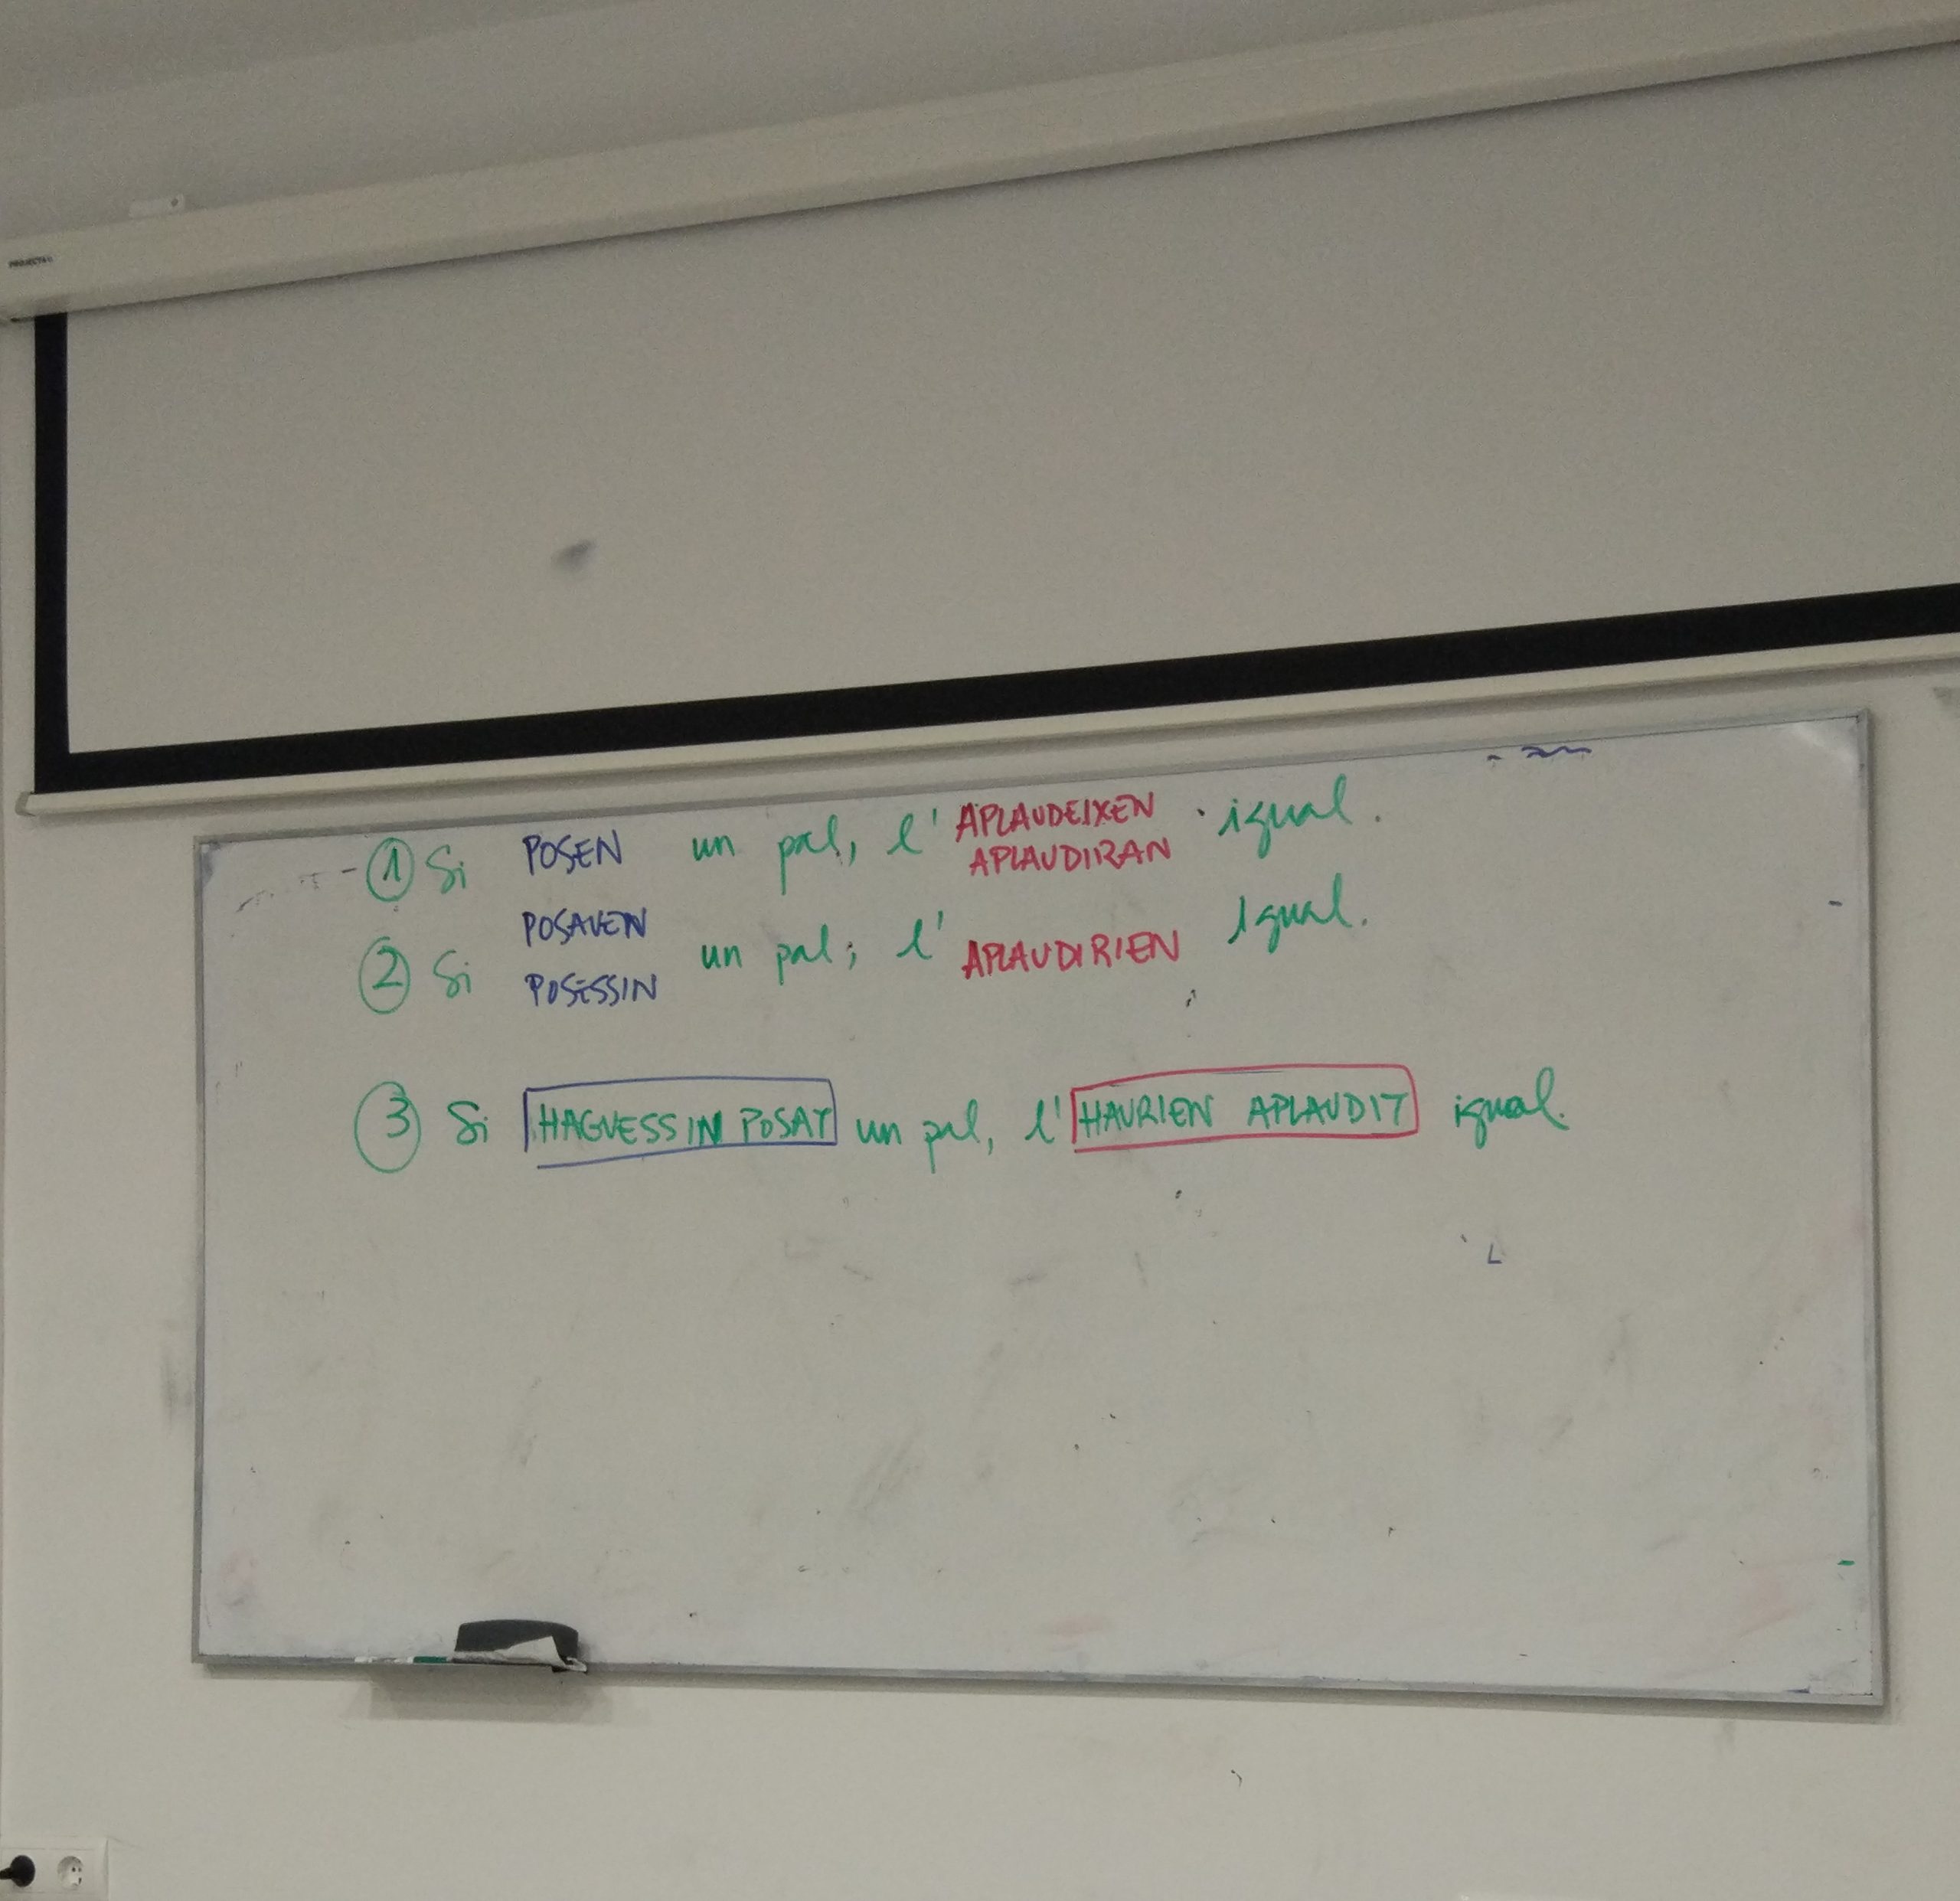 ① Si POSEN un pal, l'APLAUDEIXEN igual.
APLAUDIRAN
POSAVEN
② Si un pal; l'APLAUDIRIEN igual.
POSESSIN
③ Si HAGUESSIN POSAT un pal, l'HAURIEN APLAUDIT igual.